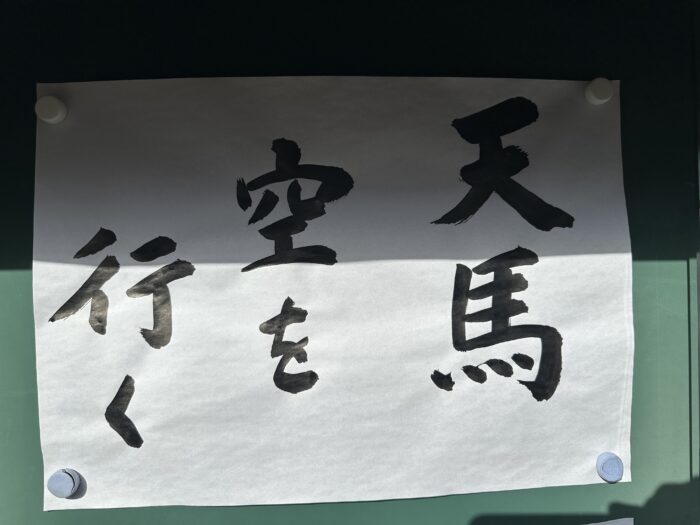 天馬
空を
行く